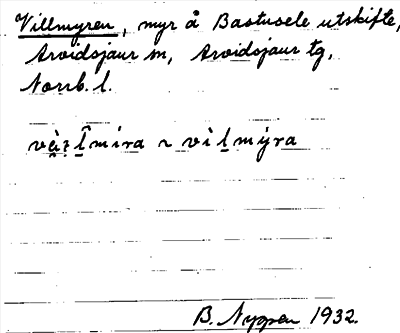 Villmyren, myr å Bastusele utskifte,
Arvidsjaur sn, Arvidsjaur tg,
Norrb. l.
míra ~ vìl̠mýra
B. Nyppen 1932.